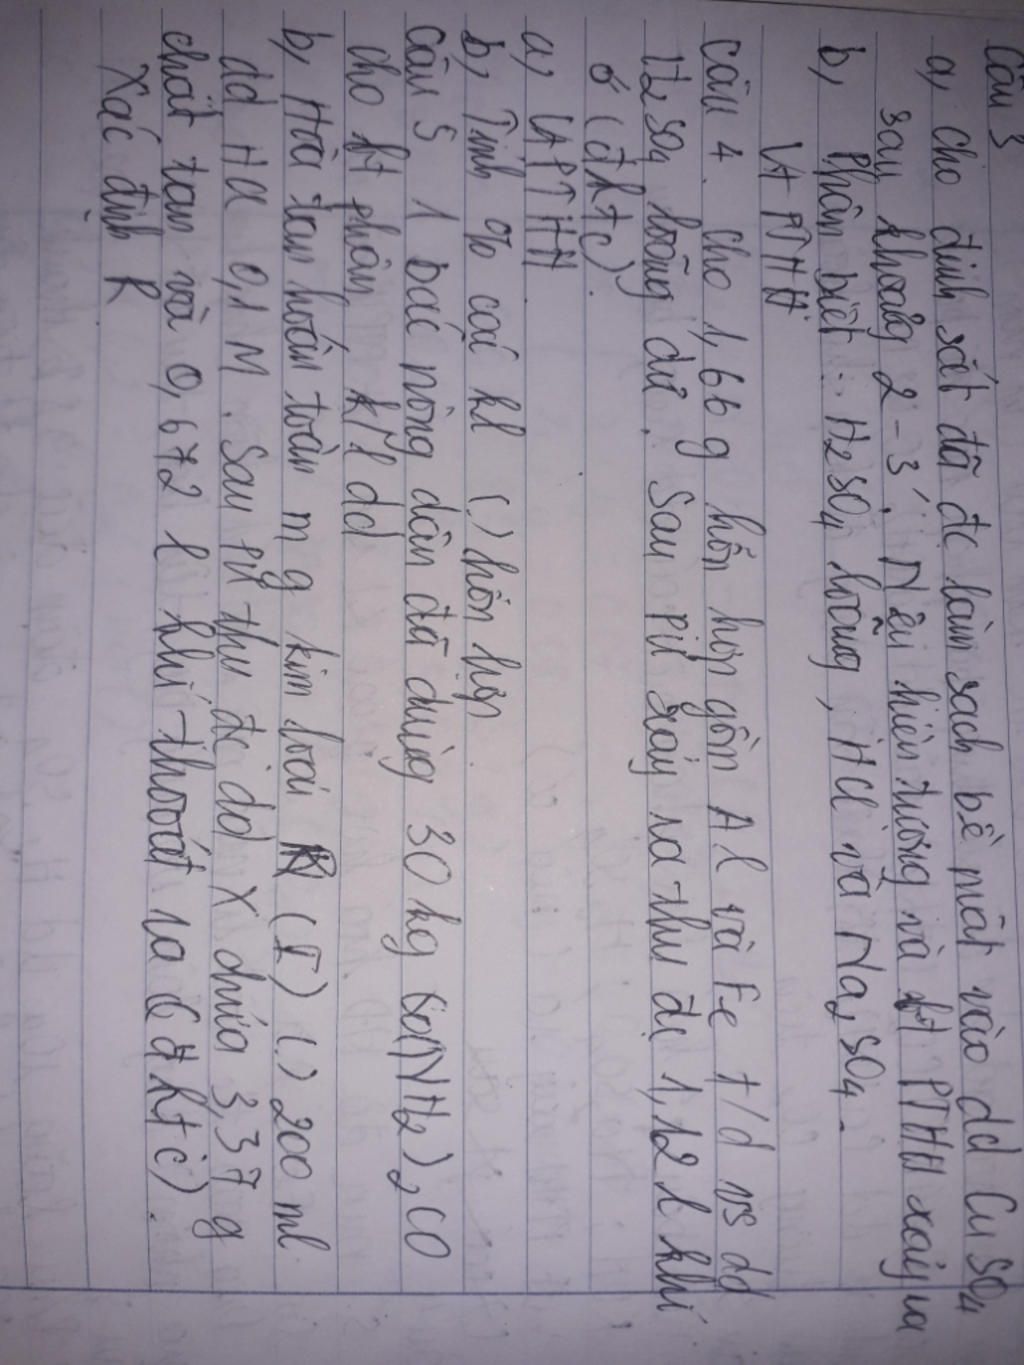 Câu 3
a, cho đinh sắt đã đc làm sạch bề mặt vào dd CuSO4
sau khoảng 2-3'. Nêu hiện tượng và PTHH xảy ra
b, Phân biệt: H2SO4 loãng, HCl và Na2SO4.
Vt PTHH
Câu 4. cho 1,66 g hỗn hợp gồm Al và Fe t/d vs dd
H2SO4 loãng dư. Sau pứ xảy ra thu đc 1,12 l khí
ở (đktc).
a, VPTHH
b, Tính % các kl (.) hỗn hợp
Câu 5 1 bác nông dân đã dùng 30 kg (NH2)2CO
cho phân, kMl dd
b, Hòa tan hoàn toàn m g kim loại R (I) (.) 200 ml
dd HCl 0,1 M. Sau pứ thu đc dd X chứa 3,37 g
chất tan và 0,672 l khí thoát ra (ở đktc).
Xác định R